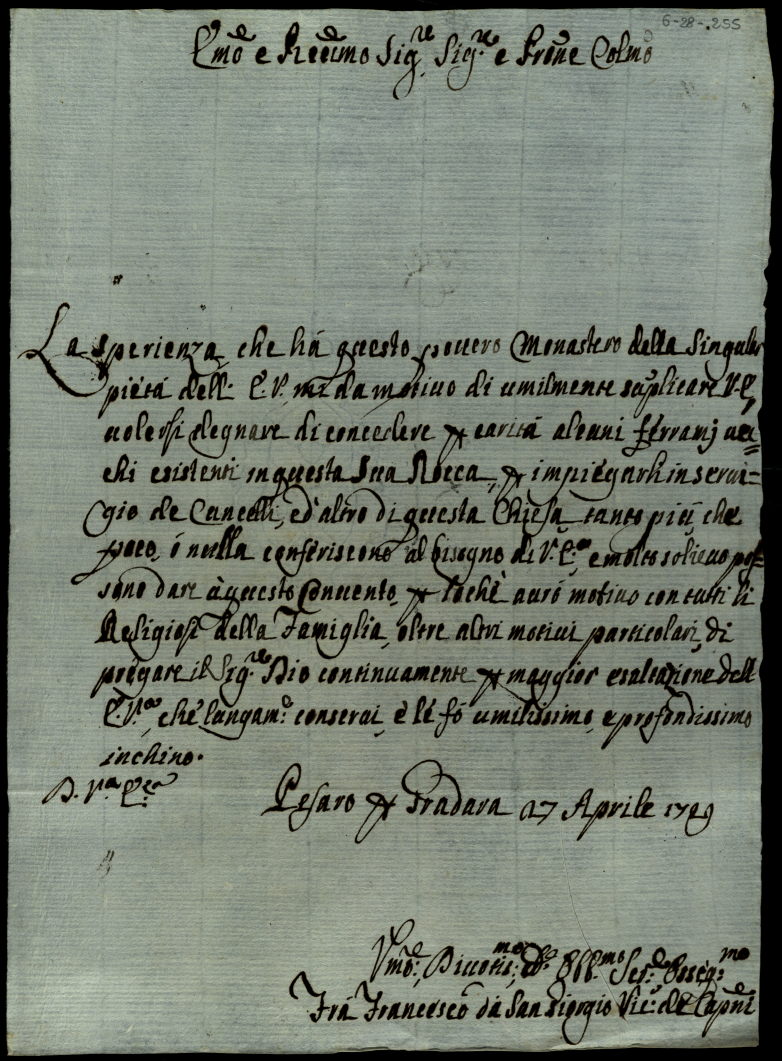 6-28-.255
Emo e Redmo Sigre Sigre e Prone Colmo
La sperienza che há questo povero Monastero della Singular
pietá dell' E.V. mi da motivo di umilmente suplicare V.E.
volersi degnare di concedere p caritá alcuni ferramj vec=
chi esistenti in questa Sua Rocca, p impiegarli in servi=
gio de Cancelli, ed' altro di questa Chiesa tanto piú che
poco, ó nulla conferiscono al bisogno di V. Eza e molto solievo pos=
sono dare á questo Convento, p loché avró motivo con tutti li
Religiosi della Famiglia, oltre altri motivi particolari, di
pregare il Sigre Dio continuamente p maggior esaltazione dell'
E. Va, che lungamte conservi, é le fó umilissimo, e profondissimo
inchino.
D. Va Eza
Pesaro p Gradara 27 Aprile 1729
Umo: Divotismo: ed Obbmo Serre Osseqmo
Frá Francesco da San Giorgio Vic: de Capni